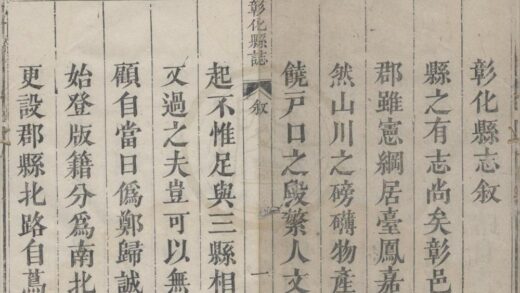 彰化縣志敘
縣之有志尚矣彰邑
郡雖憲綱居臺鳳嘉
然山川之磅礴物產
饒戶口之殷繁人文
彰化縣誌
敘
一
起不惟足與三縣相
又過之夫豈可以無
顧自當日僞鄭歸誠
始登版籍分爲南北
更設郡縣北路自蔦